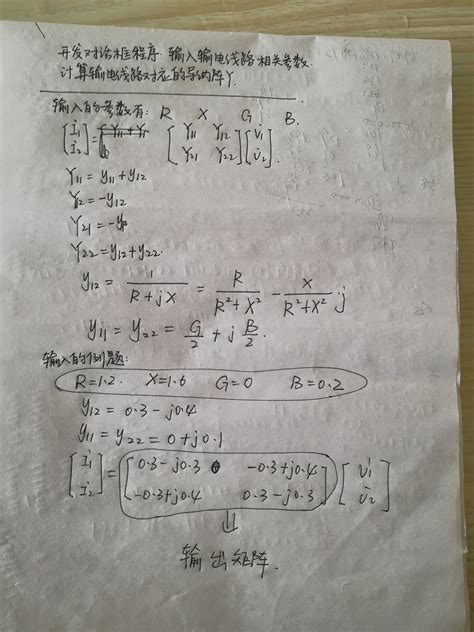 开发对话框程序.输入输电线路相关参数.
计算输电线路对应的导纳阵Y.
输入的参数有: R X G B.
[i1 i2] = [Y11 Y12 Y21 Y22][v1 v2].
Y11 = y11 + y12
Y12 = -y12
Y21 = -y12
Y22 = y12 + y22.
y12 = 1/(R+jX) = R/(R²+X²) - X/(R²+X²) j
y11 = y22 = G/2 + j B/2.
输入的例题:
R=1.2. X=1.6 G=0 B=0.2
y12 = 0.3-j0.4
y11 = y22 = 0+j0.1
[i1 i2] = [0.3-j0.3 -0.3+j0.4 -0.3+j0.4 0.3-j0.3][v1 v2]
⇓
输出矩阵.